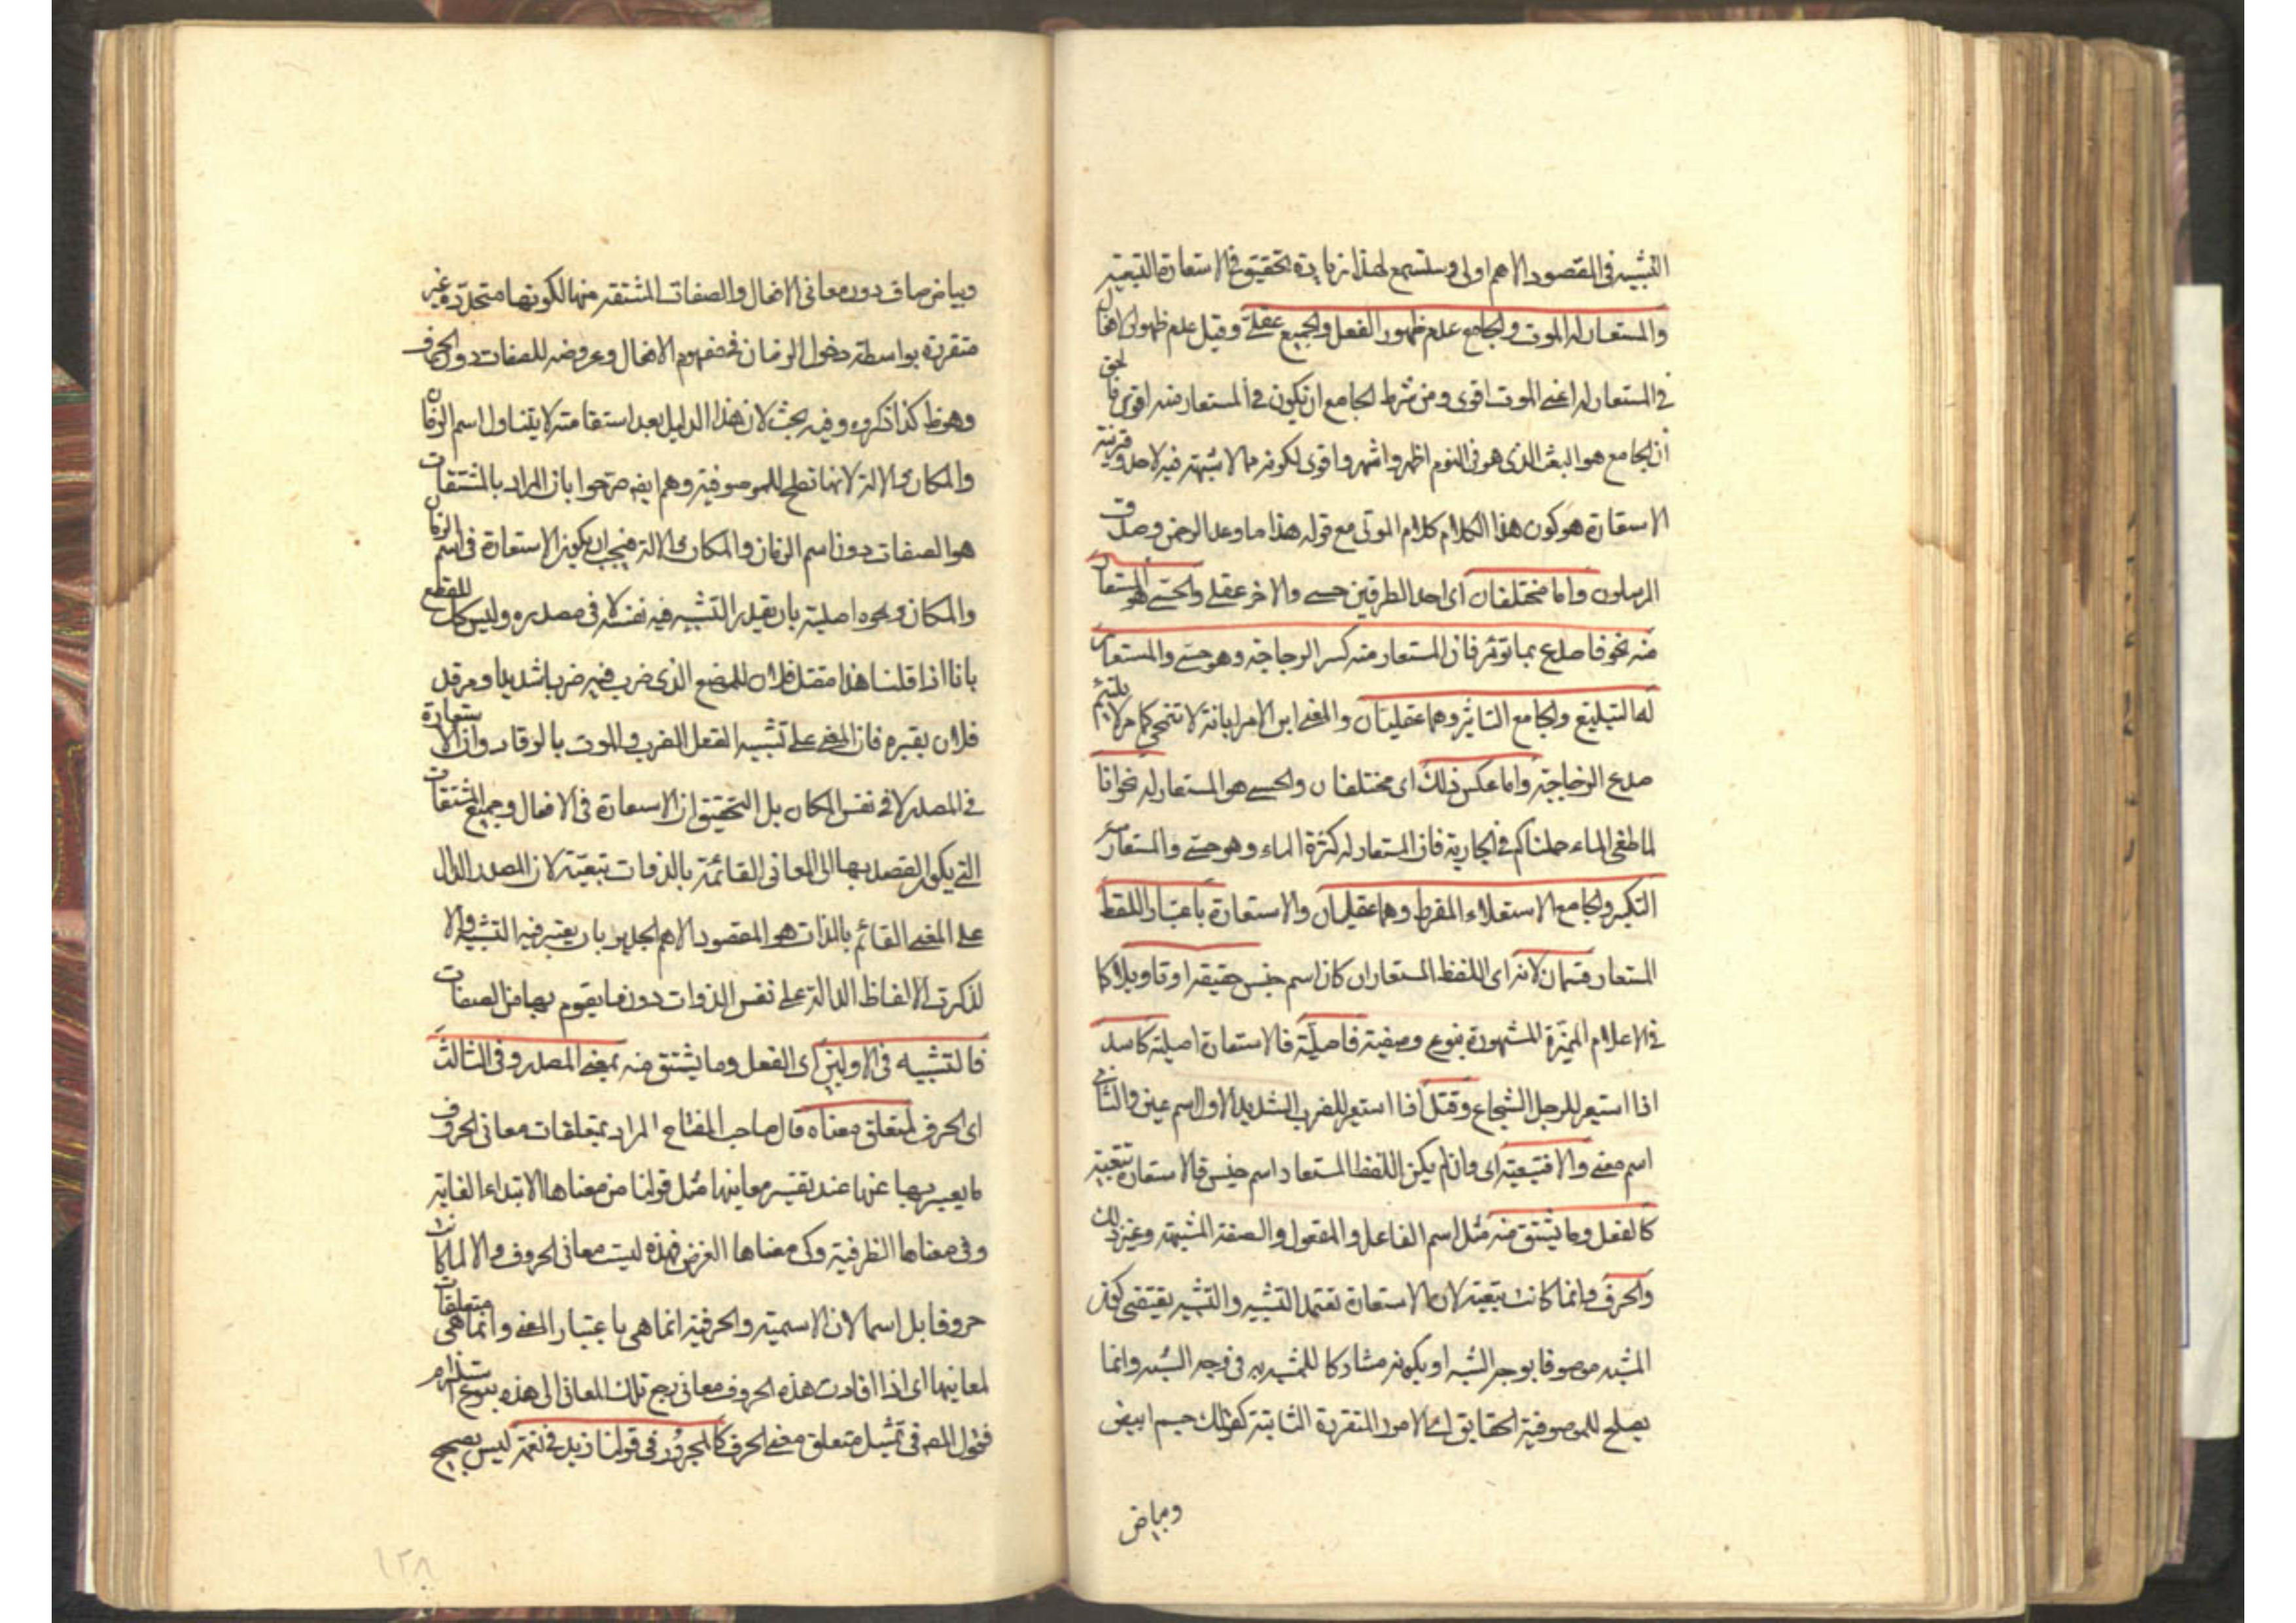 التشبيه في المقصود الاهم اولى وستسمع لهذا زيادة تحقيق في الاستعارة التبعية
والمستعار له الموت والجامع عدم ظهور الفعل والجميع عقلي وقيل عدم ظهور الافعال
في المستعار له اعني الموت اقوى ومن شرط الجامع ان يكون في المستعار منه اقوى فالحق
ان الجامع هو البعث الذي هو في النوم اظهر واشهر واقوى لكونه مما لا شبهة فيه لاحد وقرينة
الاستعارة هو كون هذا الكلام كلام الموتى مع قوله هذا ما وعد الرحمن وصدق
المرسلون واما مختلفان اي احد الطرفين حسي والاخر عقلي والحسي هو المستعار
منه نحو فاصدع بما تؤمر فان المستعار منه كسر الزجاجة وهو حسي والمستعار
له التبليغ والجامع التاثير وهما عقليان والمعنى ابن الامر ابانة لا تنمحي كما لا يلتئم
صدع الزجاجة واما عكس ذلك اي مختلفان والحسي هو المستعار له نحو انا
لما طغى الماء حملناكم في الجارية فان المستعار له كثرة الماء وهو حسي والمستعار منه
التكبر والجامع الاستعلاء المفرط وهما عقليان والاستعارة باعتبار اللفظ
المستعار قسمان لانه اي اللفظ المستعار ان كان اسم جنس حقيقة او تاويلا كما
في الاعلام المميزة المشهورة بنوع وصفية فاصلية فالاستعارة اصلية كاسد
اذا استعير للرجل الشجاع وقتل اذا استعير للضرب الشديد الاول اسم عين والثاني
اسم معنى والا فتبعية اي وان لم يكن اللفظ المستعار اسم جنس فالاستعارة تبعية
كالفعل وما يشتق منه مثل اسم الفاعل والمفعول والصفة المشبهة وغير ذلك
والحرف وانما كانت تبعية لان الاستعارة تعتمد التشبيه والتشبيه يقتضي كون
المشبه موصوفا بوجه الشبه او بكونه مشاركا للمشبه به في وجه الشبه وانما
يصلح للموصوفية الحقايق اي الامور المتقررة الثابتة كقولك جسم ابيض
وبياض
وبياض صاف دون معاني الافعال والصفات المشتقة منها لكونها متجددة غير
متقررة بواسطة دخول الزمان في مفهوم الافعال وعروضه للصفات دون الحروف
وهو ظ كذا ذكروه وفيه بحث لان هذا الدليل بعد استقامته لا يتناول اسم الزمان
والمكان والالة لانها تصلح للموصوفية وهم ايضا صرحوا بان المراد بالمشتقات
هو الصفات دون اسم الزمان والمكان والالة فيجب ان يكون الاستعارة في اسم الزمان
والمكان ونحوه اصلية بان يقدر التشبيه فيه نفسه لا في مصدره وليس كك للقطع
بانا اذا قلنا هذا مقتل فلان للموضع الذي ضرب فيه ضربا شديدا ومرقد
فلان بقبره فان المعنى على تشبيه الفعل الضرب والموت بالرقاد وان الاستعارة
في المصدر لا في نفس المكان بل التحقيق ان الاستعارة في الافعال وجميع المشتقات
التي يكون القصد بها الى المعاني القائمة بالذوات تبعية لان المصدر الدال
على المعنى القائم بالذات هو المقصود الاهم الجدير بان يعتبر فيه التشبيه والا
لذكرت الالفاظ الدالة على نفس الذوات دون ما يقوم بها من الصفات
فالتشبيه في الاولين اي الفعل وما يشتق منه لمعنى المصدر وفي الثالث
اي الحرف لمتعلق معناه قال صاحب المفتاح المراد بمتعلقات معاني الحروف
ما يعبر بها عنها عند تفسير معانيها مثل قولنا من معناها الابتداء الغاية
وفي معناها الظرفية وكي معناها الغرض فهذه ليست معاني الحروف والا لما كانت
حروفا بل اسما لان الاسمية والحرفية انما هي باعتبار المعنى وانما هي متعلقات
لمعانيها اي اذا افادت هذه الحروف معاني رجع تلك المعاني الى هذه بنوع استلزام
فقول المصـ في تمثيل متعلق معنى الحرف كالمجرور في قولنا زيد في نعمة ليس بصحيح
١٢٨